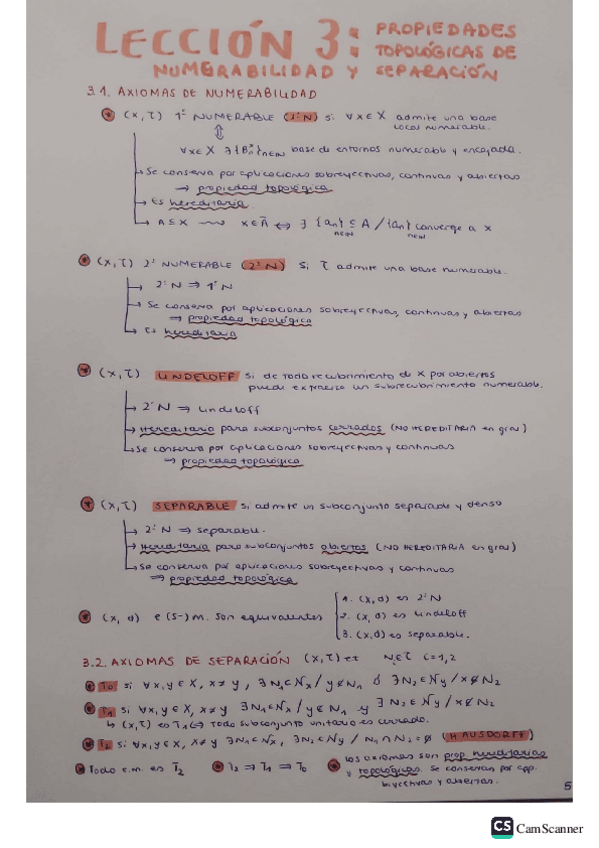 LECCIÓN 3: PROPIEDADES
TOPOLÓGICAS DE
NUMERABILIDAD Y SEPARACIÓN
3.1. AXIOMAS DE NUMERABILIDAD
(X, τ) 1º NUMERABLE (1ºN) si ∀x∈X admite una base
local numerable.
⇕
∀x∈X ∃{Bₙˣ}n∈N base de entornos numerable y encajada.
→ Se conserva por aplicaciones sobreyectivas, continuas y abiertas
→ propiedad topológica
→ Es hereditaria.
→ A⊆X x∈Ā ⇔ ∃ {aₙ}n∈N ⊆ A / {aₙ}n∈N converge a x
(X, τ) 2º NUMERABLE (2ºN) si τ admite una base numerable.
→ 2ºN ⇒ 1ºN
→ Se conserva por aplicaciones sobreyectivas, continuas y abiertas
⇒ propiedad topológica
→ Es hereditaria
(X, τ) LINDELOFF si de todo recubrimiento de X por abiertos
puede extraerse un subrecubrimiento numerable.
→ 2ºN ⇒ Lindeloff
→ Hereditario para subconjuntos cerrados (NO HEREDITARIA en gral)
→ Se conserva por aplicaciones sobreyectivas y continuas
⇒ propiedad topológica
(X, τ) SEPARABLE si admite un subconjunto separable y denso
→ 2ºN ⇒ separable.
→ Hereditaria para subconjuntos abiertos (NO HEREDITARIA en gral)
→ Se conserva por aplicaciones sobreyectivas y continuas
⇒ propiedad topológica
(X, d) e(s-)m. son equivalentes
1. (X, d) es 2ºN
2. (X, d) es Lindeloff
3. (X, d) es separable.
3.2. AXIOMAS DE SEPARACIÓN (X, τ) et i=1,2
T₀ si ∀x,y∈X, x≠y, ∃N₁∈Nₓ / y∉N₁ ó ∃N₂∈Ny / x∉N₂
T₁ si ∀x,y∈X, x≠y ∃N₁∈Nₓ / y∉N₁ y ∃N₂∈Ny / x∉N₂
↳ (X, τ) es T₁ ⇔ Todo subconjunto unitario es cerrado.
T₂ si ∀x,y∈X, x≠y ∃N₁∈Nₓ, ∃N₂∈Ny / N₁∩N₂=∅ (HAUSDORFF)
Todo e.m. es T₂
T₂ ⇒ T₁ ⇒ T₀
los axiomas son prop. hereditarias
y topológicas. Se conservan por app.
biyectivas y abiertas.
5
CS CamScanner